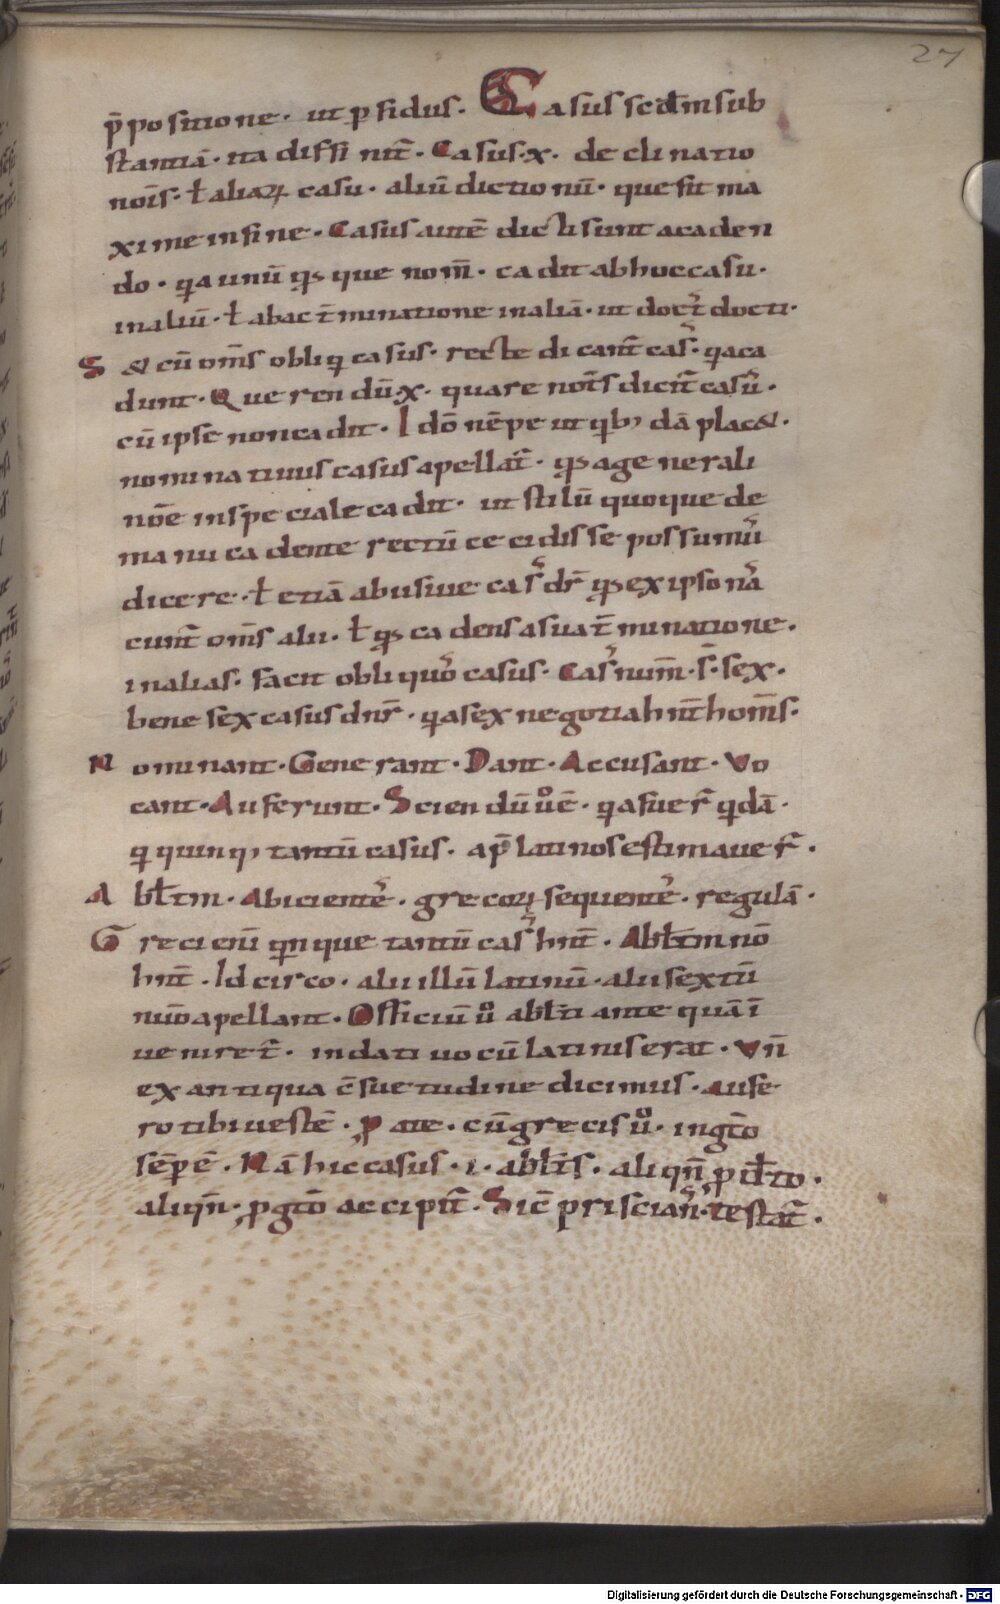 27
p̄positione· ut ꝑfidus· Casus scd̄m sub
stantiā· ita diffinit̄· Casus·x· declinatio
noīs· ł aliaꝝ casu· aliū dictionū· que fit ma
xime in fine· Casus autē dicti sunt a caden
do· qa unū qđ que nom̄· cadit ab hoc casu·
in aliū· ł ab ac t̄minatione in aliā· ut doct᾿ docti·
S & cū om̄s obliqi casus· recte dicant̄ cas᾿· qa ca
dunt· Querendū·x· quare not̄s dicit̄ casu᾿·
cū ipse non cadit· Idō nēpe ut qibꝫ dā plac&·
nominatiuus casus apellat̄· qđ a generali
nōe in speciale cadit· ut stilū quoque de
manu cadente rectū cecidisse possumu᾿
dicere· ł etiā abusiue cas᾿ dr̄ qđ ex ipso na᾿
cunt᾿ om̄s alii· ł qđ cadens a sua t̄minationē·
in alias· facit obliquo᾿ casus· Cas᾿ num̄·s̄·sex·
bene sex casus dn̄r· qa sex negotia hn̄t hom̄s·
N ominant· Generant· Dant· Accusant· Vo
cant· Auferunt· Sciendū u̾ē· qa fuer̄ qidā·
qi quinqꝫ tantū casus· ap̄ latinos estimauer̄·
A błtm· Abiciente᾿· grecoꝝ sequente᾿· regulā·
G reci enī qinque tantū cas᾿ hn̄t· Abłtm nō
hn̄t· Idcirco· alii illū latinū· alii sextū
nūo apellant· Officiū u̾ abłti ante quā ī
ueniret̄· in dati uocū latinis erat· Vn̄
ex antiqua c̄suetudine dicimus· aufe
ro tibi uestē· ꝓ a te· cū grecis u̾· in gt̄o
sēpē· Nā hic casus·i· abłts· aliqn̄ ꝓ dt̄o·
aliqn̄· ꝓ gt̄o accipit̄· Sic̄ priscian᾿· testat̄·
Digitalisierung gefördert durch die Deutsche Forschungsgemeinschaft - DFG